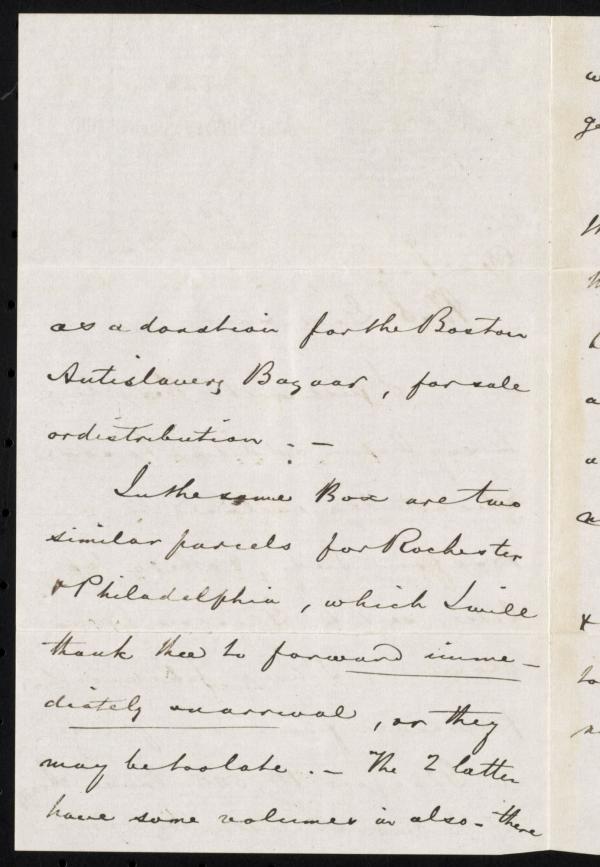 as a donation for the Boston
Antislavery Bazaar, for sale
or distribution. —
In the same Box are two
similar parcels for Rochester
& Philadelphia, which I will
thank thee to forward imme-
diately on arrival, or they
may be too late. — The 2 latter
have some volumes in also - there